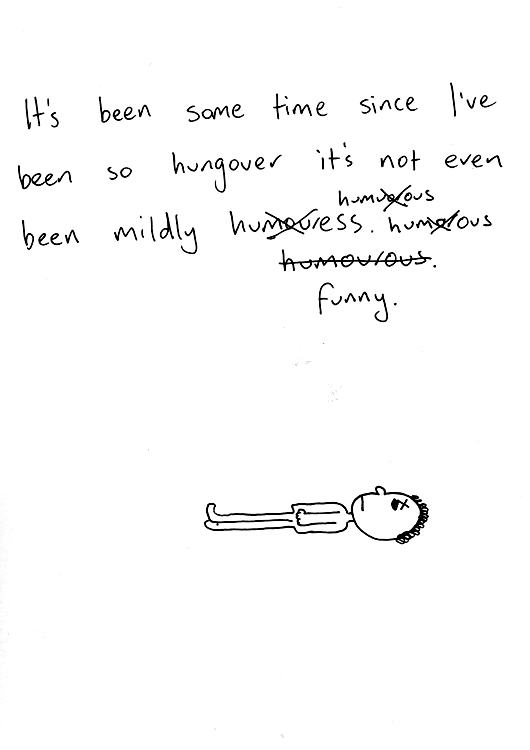 It's been some time since I've
been so hungover it's not even
humorous
been mildly humouress. humorous
humourous.
funny.